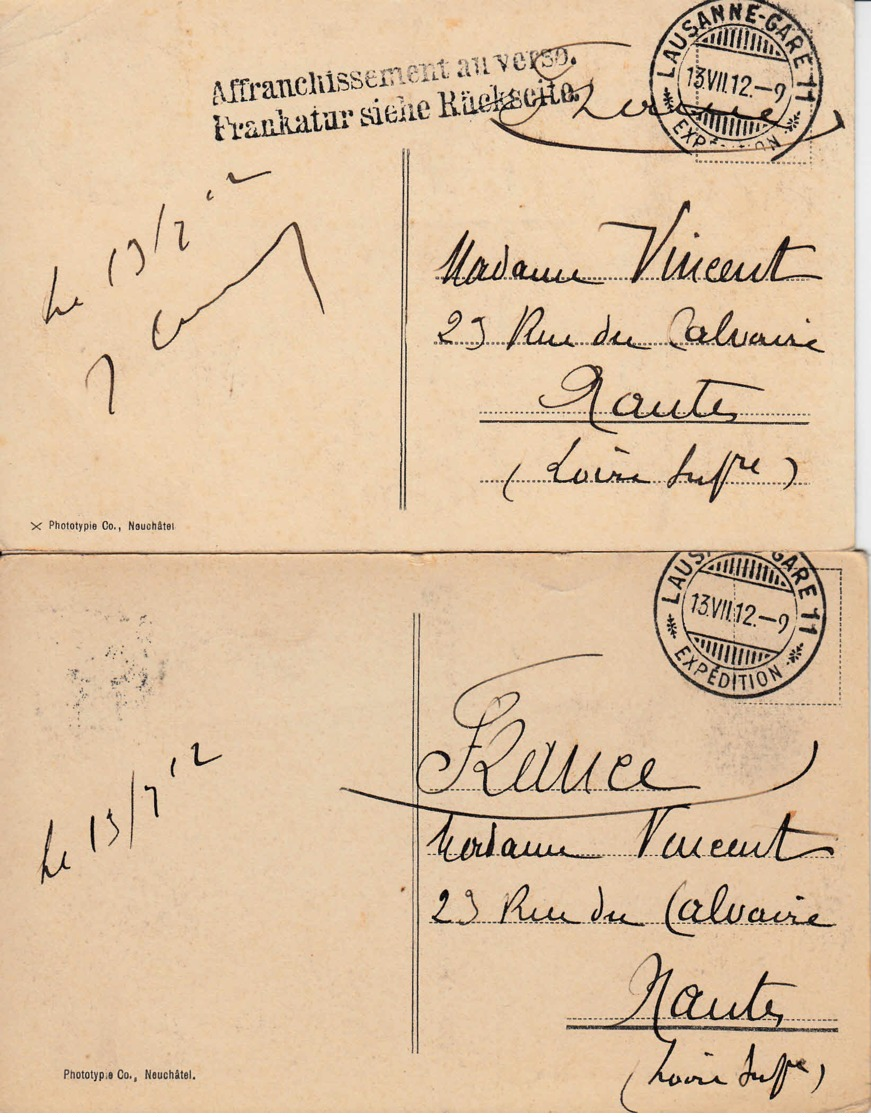 Affranchissement au verso.
Frankatur siehe Rückseite.
LAUSANNE-GARE 11
13.VII.12.–9
EXPÉDITION
France
Le 13/7 12
Madame Vincent
23 Rue du Calvaire
Nantes
(Loire Infre)
Phototypie Co., Neuchâtel
LAUSANNE-GARE 11
13.VII.12.–9
EXPÉDITION
France
Le 13/7 12
Madame Vincent
23 Rue du Calvaire
Nantes
(Loire Infre)
Phototypie Co., Neuchâtel.